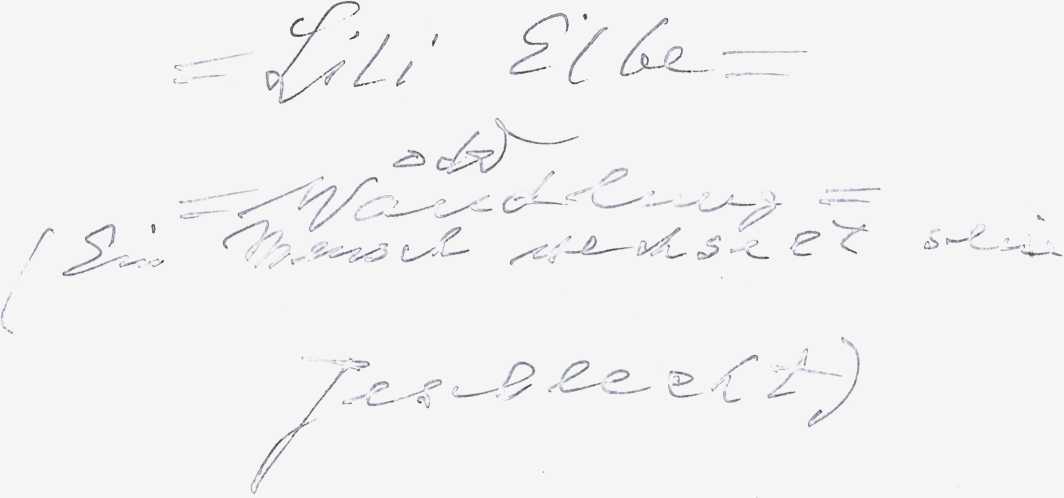 = Lili Elbe =
oder
= Wandlung =
(Ein Mensch wechselt sein
Geschlecht)